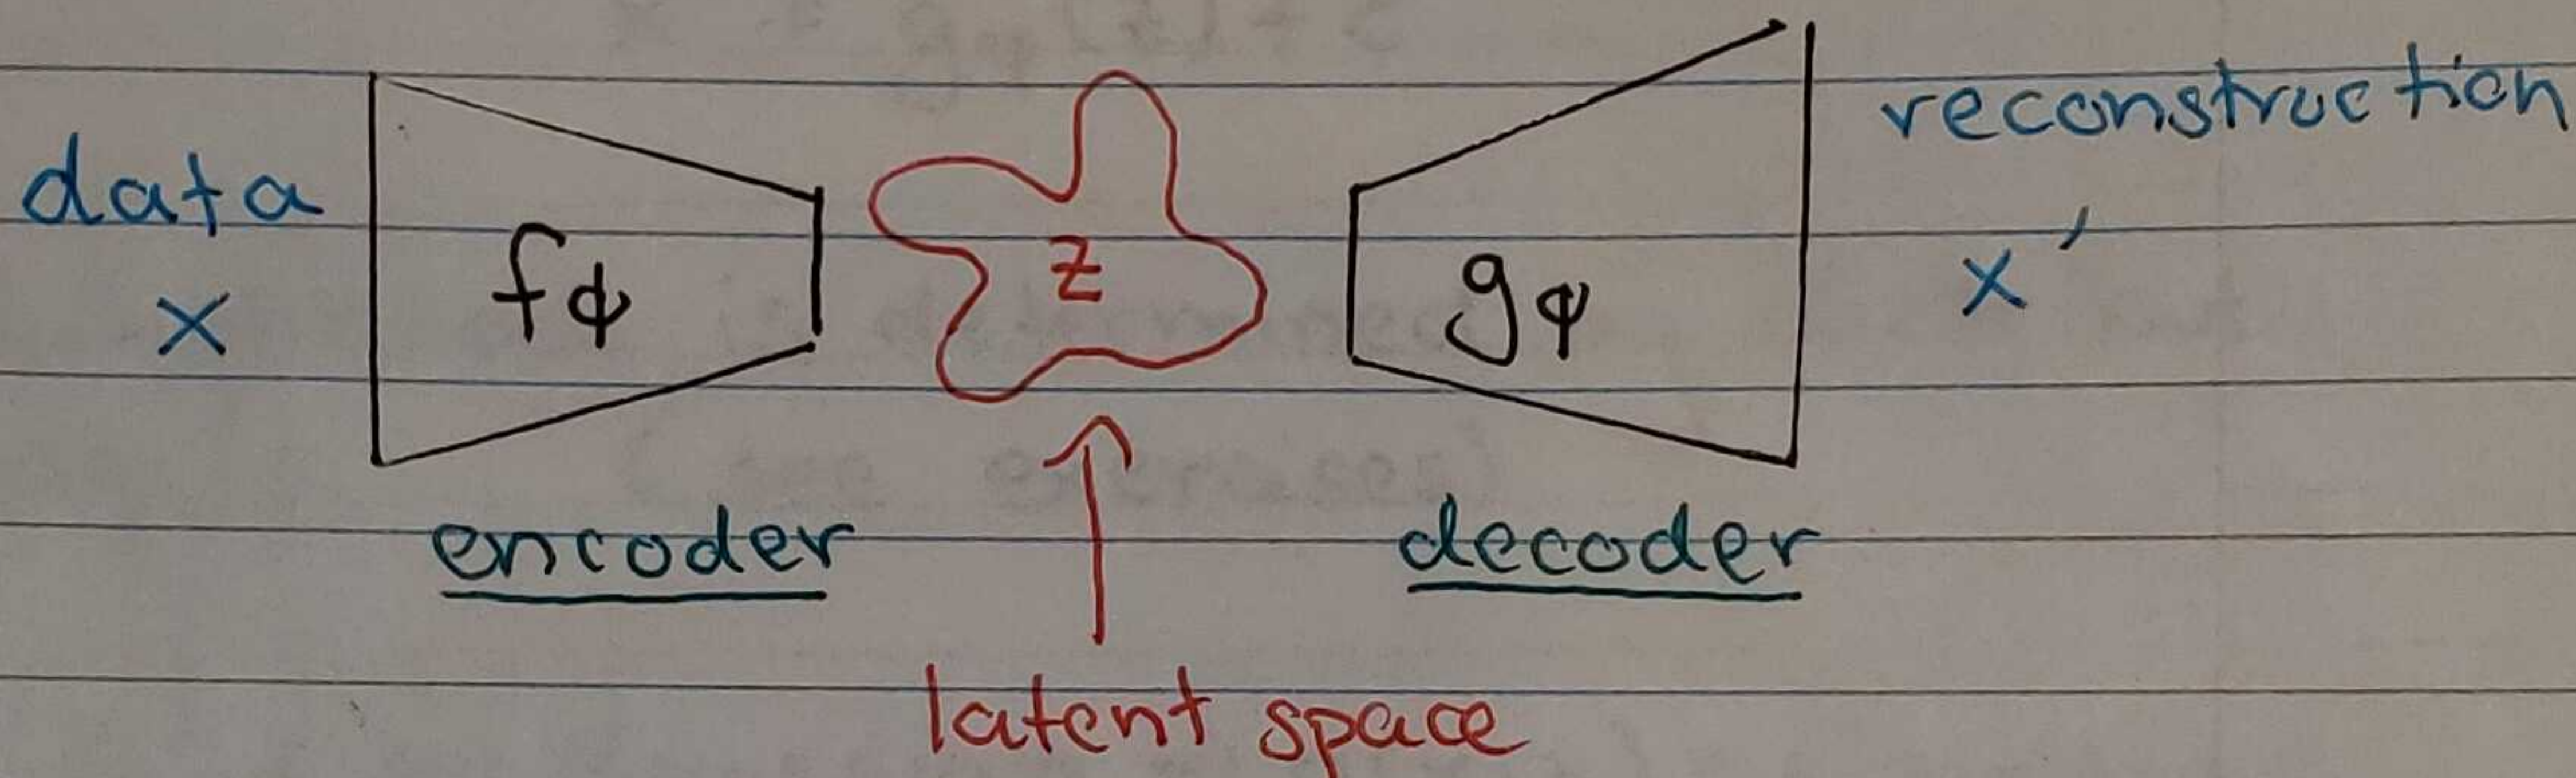 data
x
fϕ
z
gφ
reconstruction
x'
encoder
decoder
latent space